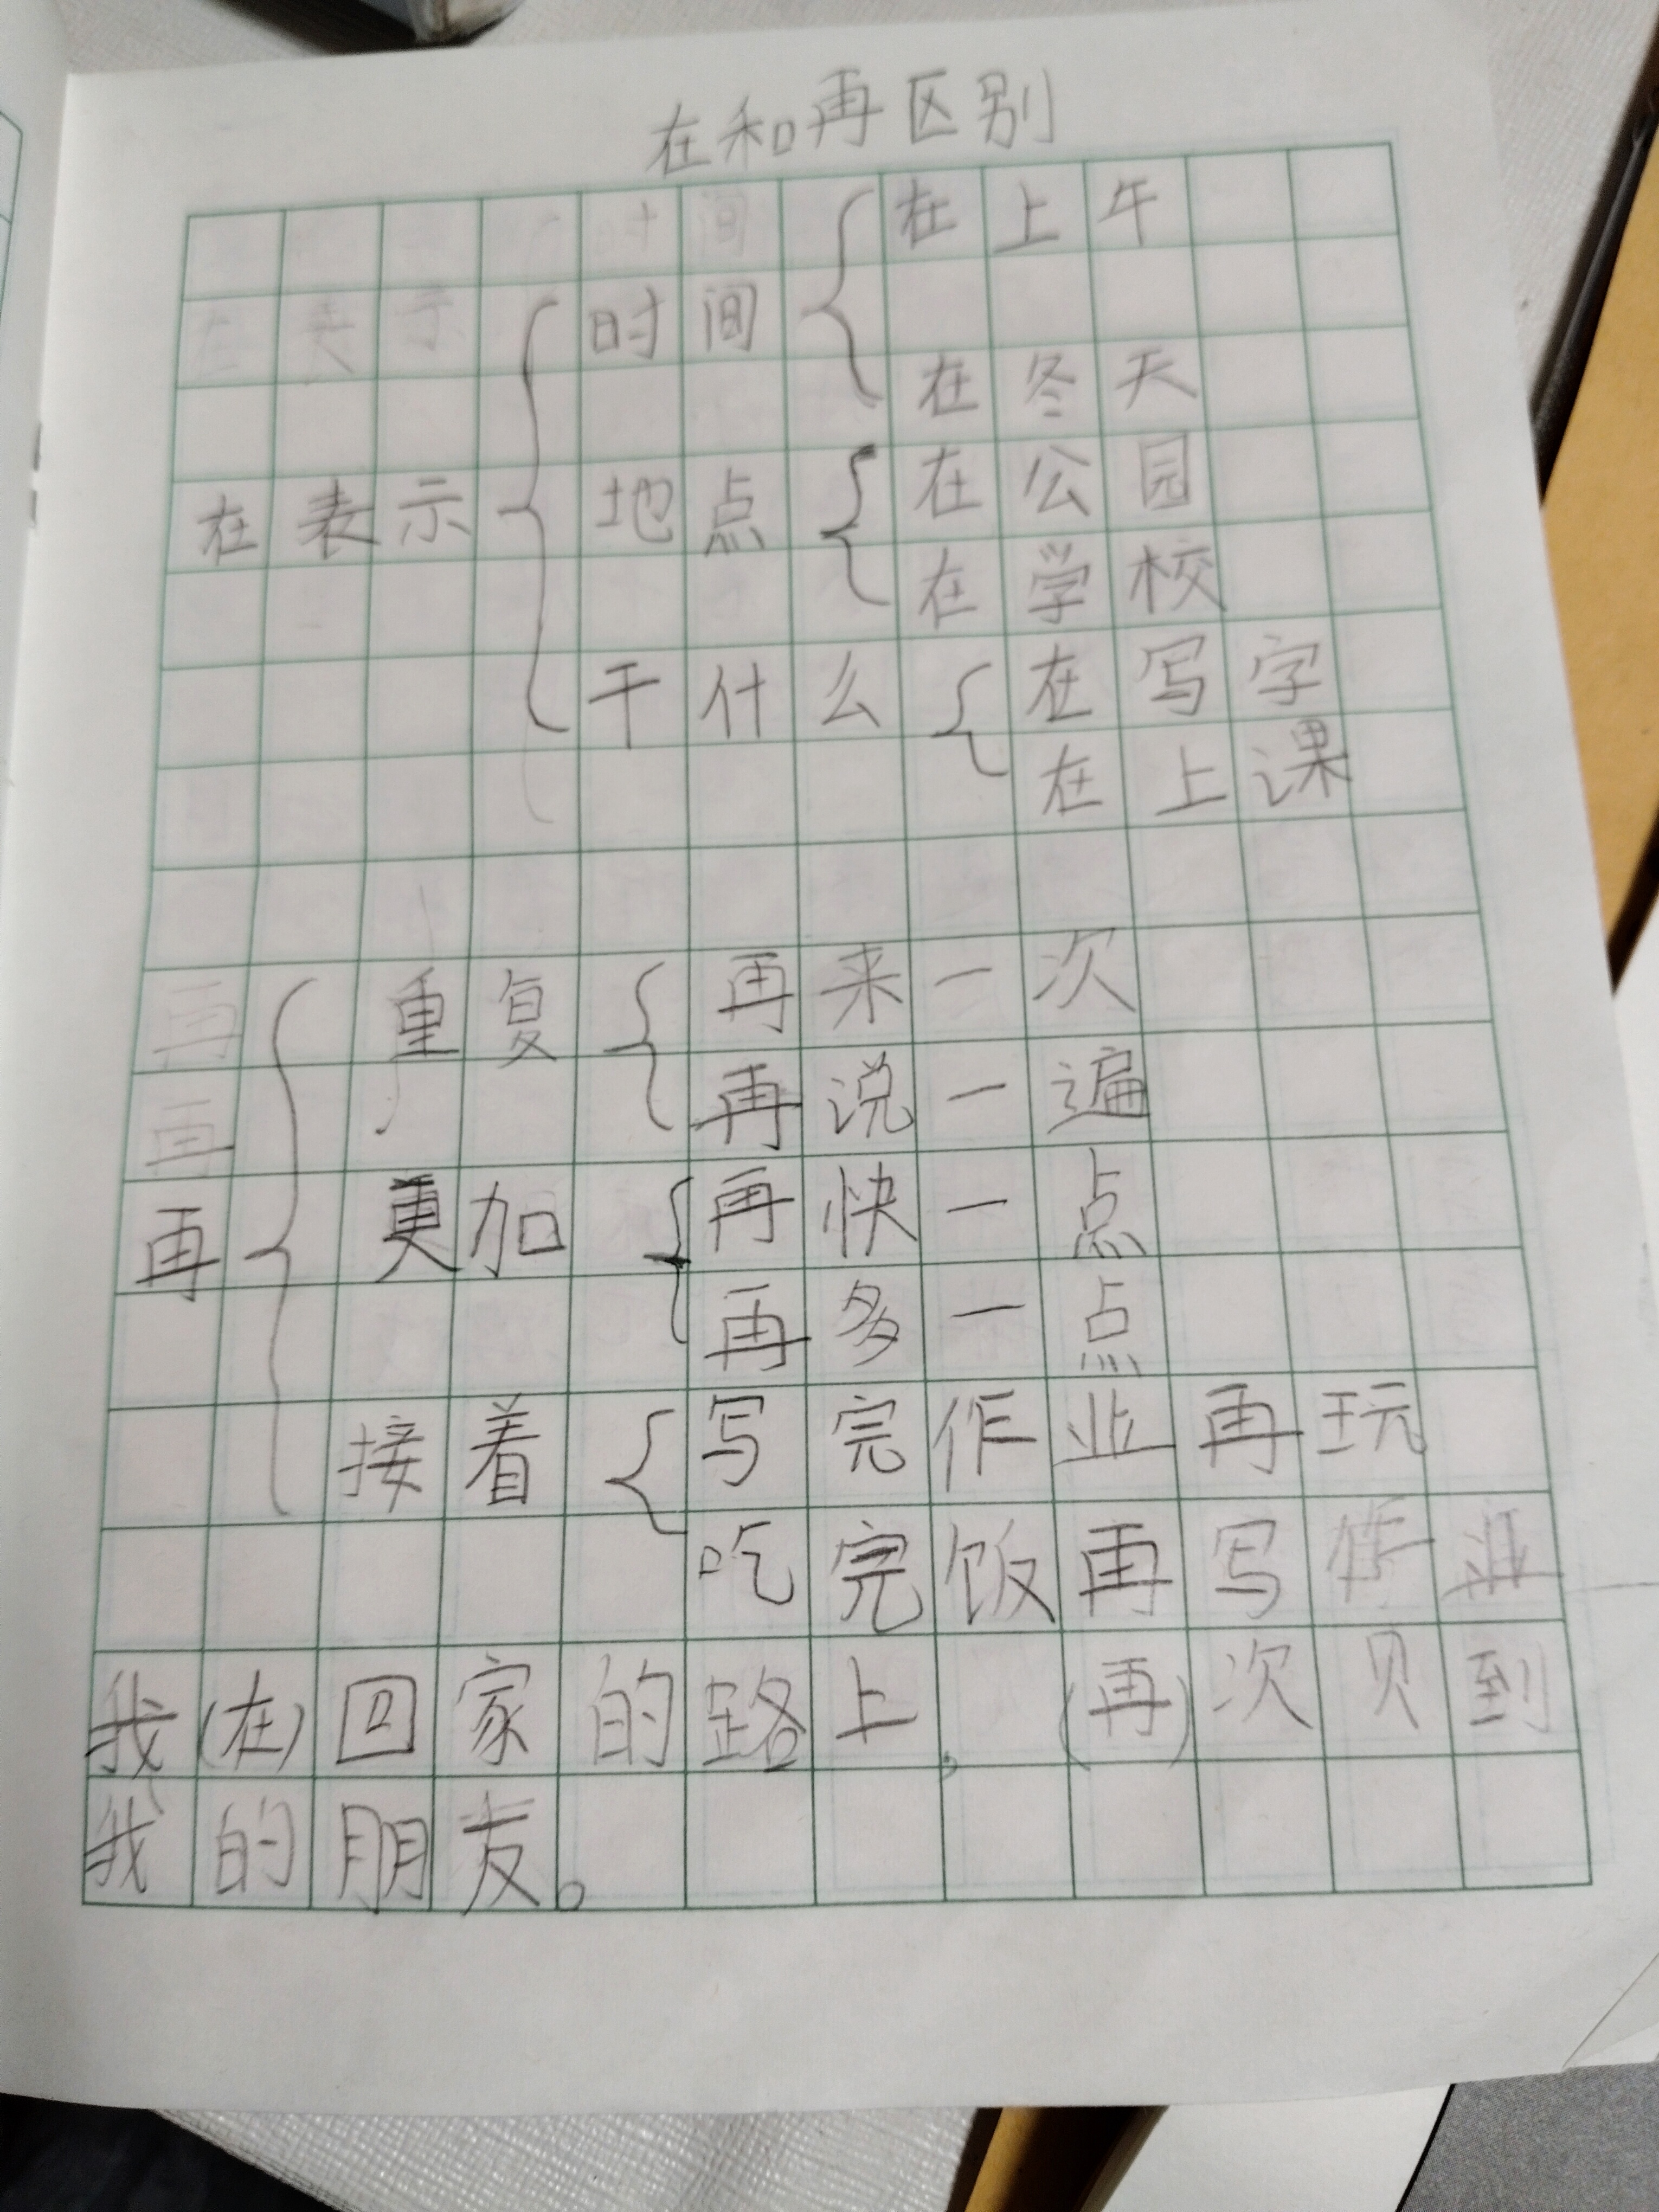 在和再区别
时间
在上午
在表示
时间
在冬天
在公园
在表示
地点
在学校
干什么
在写字
在上课
再
重复
再来一次
再
再说一遍
再
更加
再快一点
再多一点
接着
写完作业再玩
吃完饭再写作业
我(在)回家的路上,(再)次见到
我的朋友。